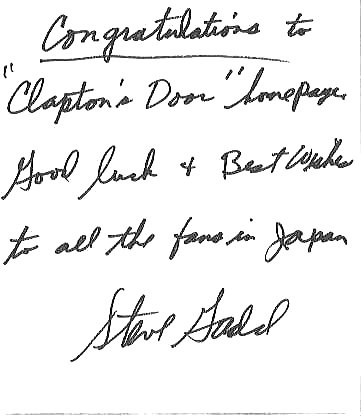 Congratulations to
"Clapton's Door" homepage.
Good luck & Best Wishes
to all the fans in Japan
Steve Gadd